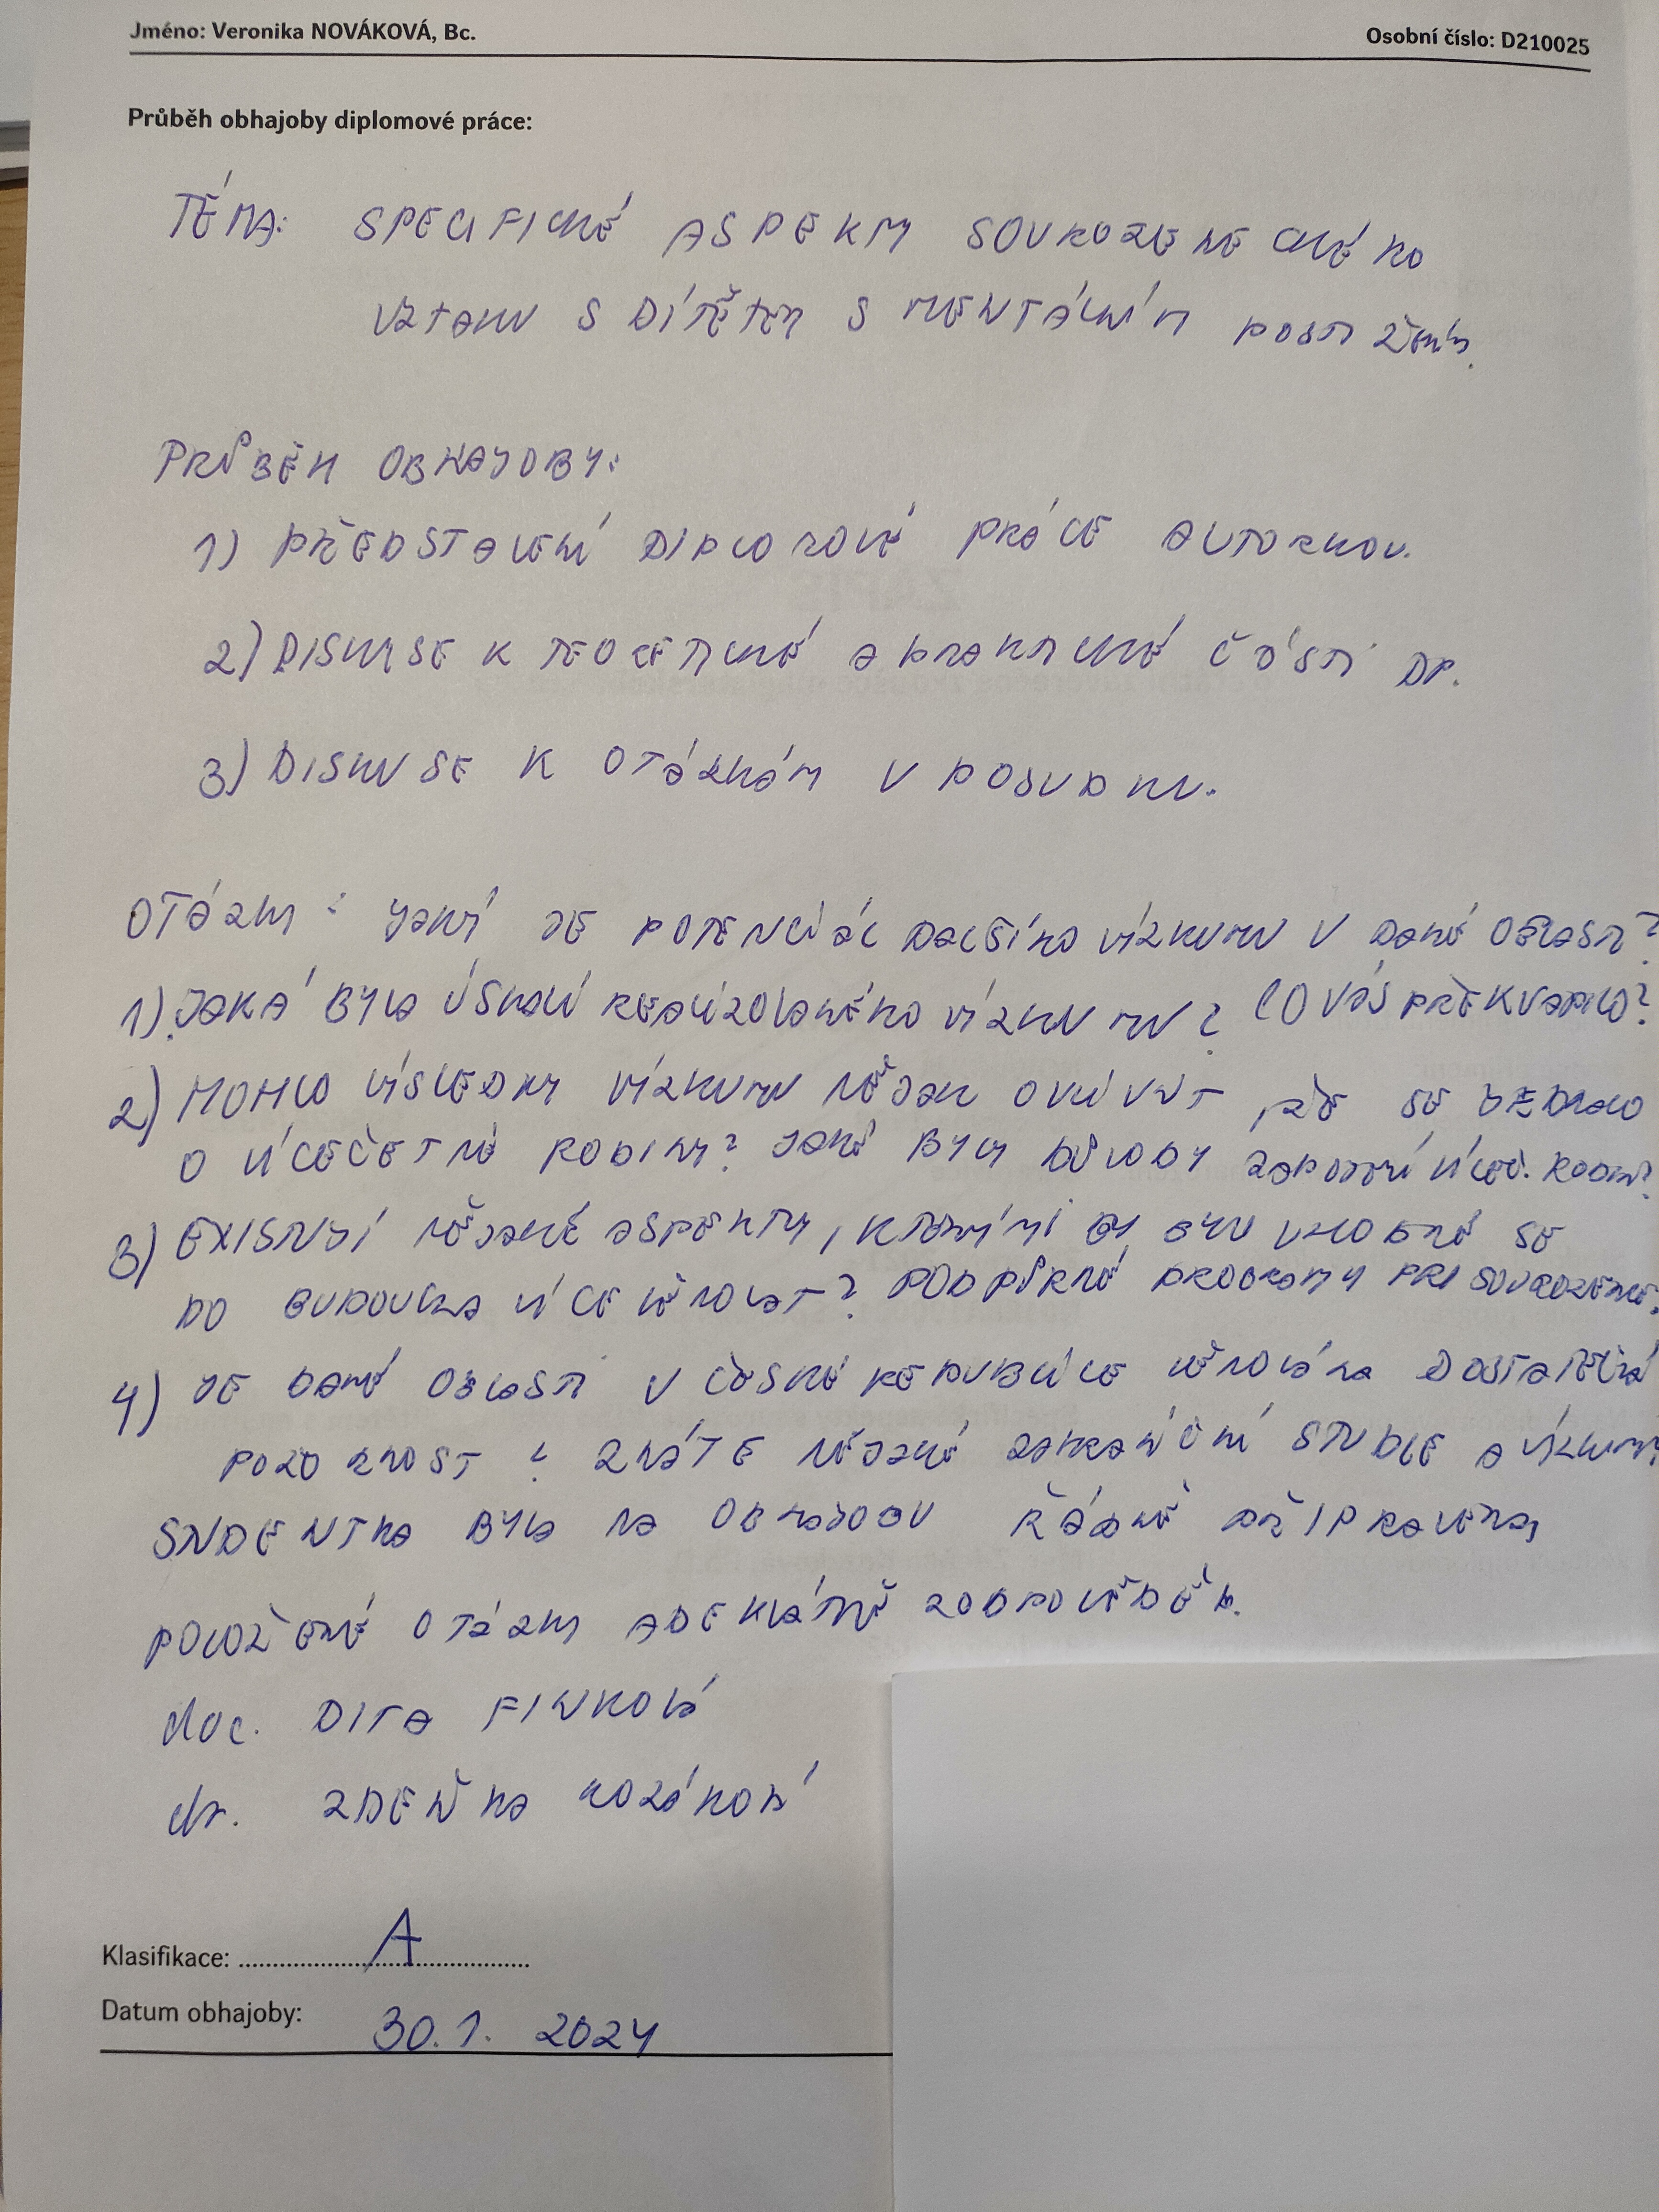 Jméno: Veronika NOVÁKOVÁ, Bc. Osobní číslo: D210025
Průběh obhajoby diplomové práce:
TÉMA: SPECIFICKÉ ASPEKTY SOUROZENECKÉHO
VZTAHU S DÍTĚTEM S MENTÁLNÍM POSTIŽENÍM.
PRŮBĚH OBHAJOBY:
1) PŘEDSTAVENÍ DIPLOMOVÉ PRÁCE AUTORKOU.
2) DISKUSE K TEORETICKÉ A PRAKTICKÉ ČÁSTI DP.
3) DISKUSE K OTÁZKÁM V POSUDKU.
OTÁZKY: JAKÝ JE POTENCIÁL DALŠÍHO VÝZKUMU V DANÉ OBLASTI?
1) JAKÁ BYLA ÚSKALÍ REALIZOVANÉHO VÝZKUMU? CO VÁS PŘEKVAPILO?
2) MOHLO VÝSLEDKY VÝZKUMU NĚJAK OVLIVNIT, ŽE SE JEDNALO
O VÍCEČETNÉ RODINY? JAKÉ BYLY DŮVODY ZAPOJENÍ VÍCEČ. RODIN?
3) EXISTUJÍ NĚJAKÉ ASPEKTY, KTERÝMI BY BYLO VHODNÉ SE
DO BUDOUCNA VÍCE VĚNOVAT? PODPŮRNÉ PROGRAMY PRO SOUROZENCE.
4) JE DANÉ OBLASTI V ČESKÉ REPUBLICE VĚNOVÁNA DOSTATEČNÁ
POZORNOST? ZNÁTE NĚJAKÉ ZAHRANIČNÍ STUDIE A VÝZKUMY
STUDENTKA BYLA NA OBHAJOBU ŘÁDNĚ PŘIPRAVENA,
POLOŽENÉ OTÁZKY ADEKVÁTNĚ ZODPOVĚDĚLA.
doc. DITA FINKOVÁ
dr. ZDEŇKA KOZÁKOVÁ
Klasifikace: A
Datum obhajoby: 30.1. 2024